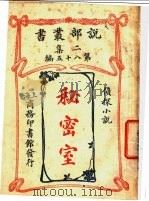 說部叢書
二集
第八十五編
偵探小說
秘密室
商務印書館發行